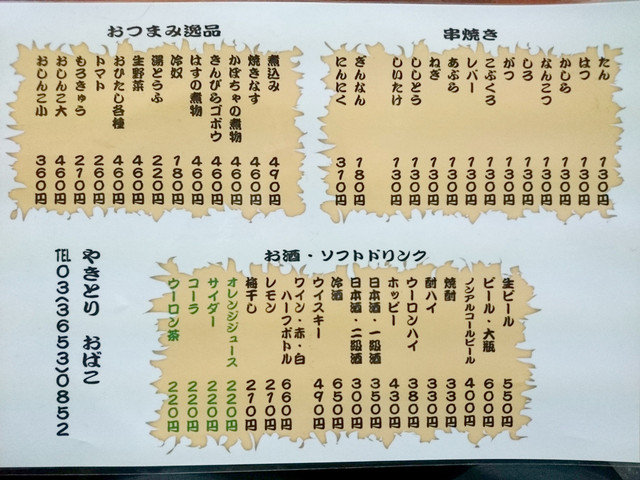 串焼き
たん 130円
はつ 130円
かしら 130円
なんこつ 130円
しろ 130円
がつ 130円
こぶくろ 130円
レバー 130円
あぶら 130円
ねぎ 130円
ししとう 130円
しいたけ 130円
ぎんなん 180円
にんにく 310円
おつまみ逸品
煮込み 490円
焼きなす 460円
かぼちゃの煮物 460円
きんぴらゴボウ 460円
はすの煮物 460円
冷奴 180円
湯どうふ 220円
生野菜 460円
おひたし各種 460円
トマト 260円
もろきゅう 210円
おしんこ大 460円
おしんこ小 360円
お酒・ソフトドリンク
生ビール 550円
ビール・大瓶 600円
ノンアルコールビール 400円
焼酎 330円
酎ハイ 330円
ウーロンハイ 380円
ホッピー 430円
日本酒・一級酒 350円
日本酒・二級酒 300円
冷酒 650円
ウイスキー 490円
ワイン・赤・白
ハーフボトル 660円
レモン 210円
梅干し 210円
オレンジジュース 220円
サイダー 220円
コーラ 220円
ウーロン茶 220円
やきとり おばこ
TEL 03(3653)0852